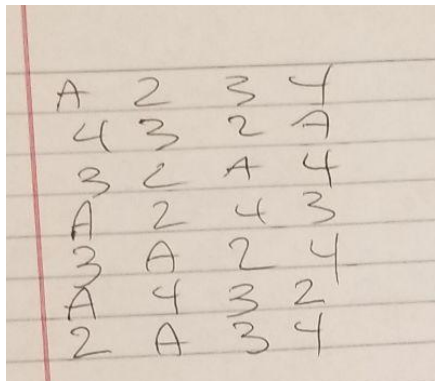 A 2 3 4
4 3 2 A
3 2 A 4
A 2 4 3
3 A 2 4
A 4 3 2
2 A 3 4